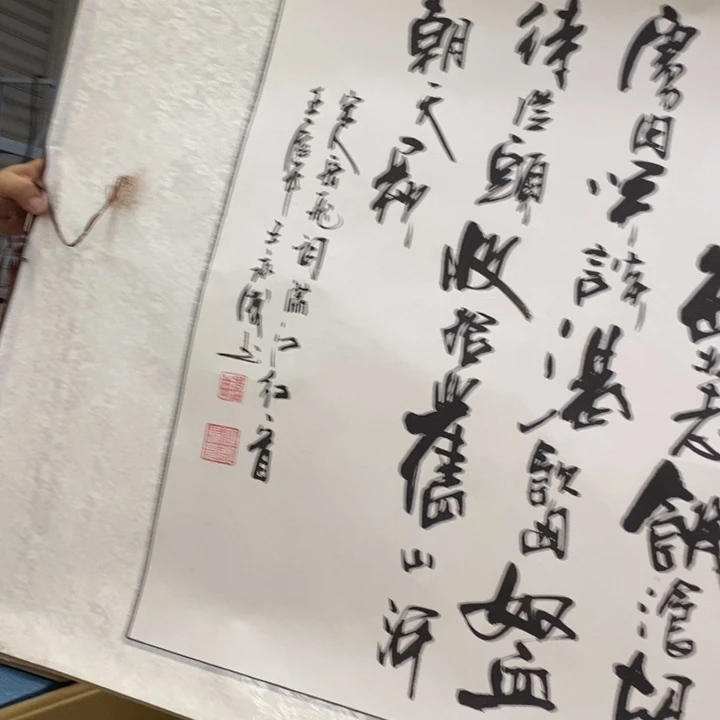 壯志飢餐胡
虜肉笑談渴飲匈奴血
待從頭收拾舊山河
朝天闕
宋人岳飛詞滿江紅一首